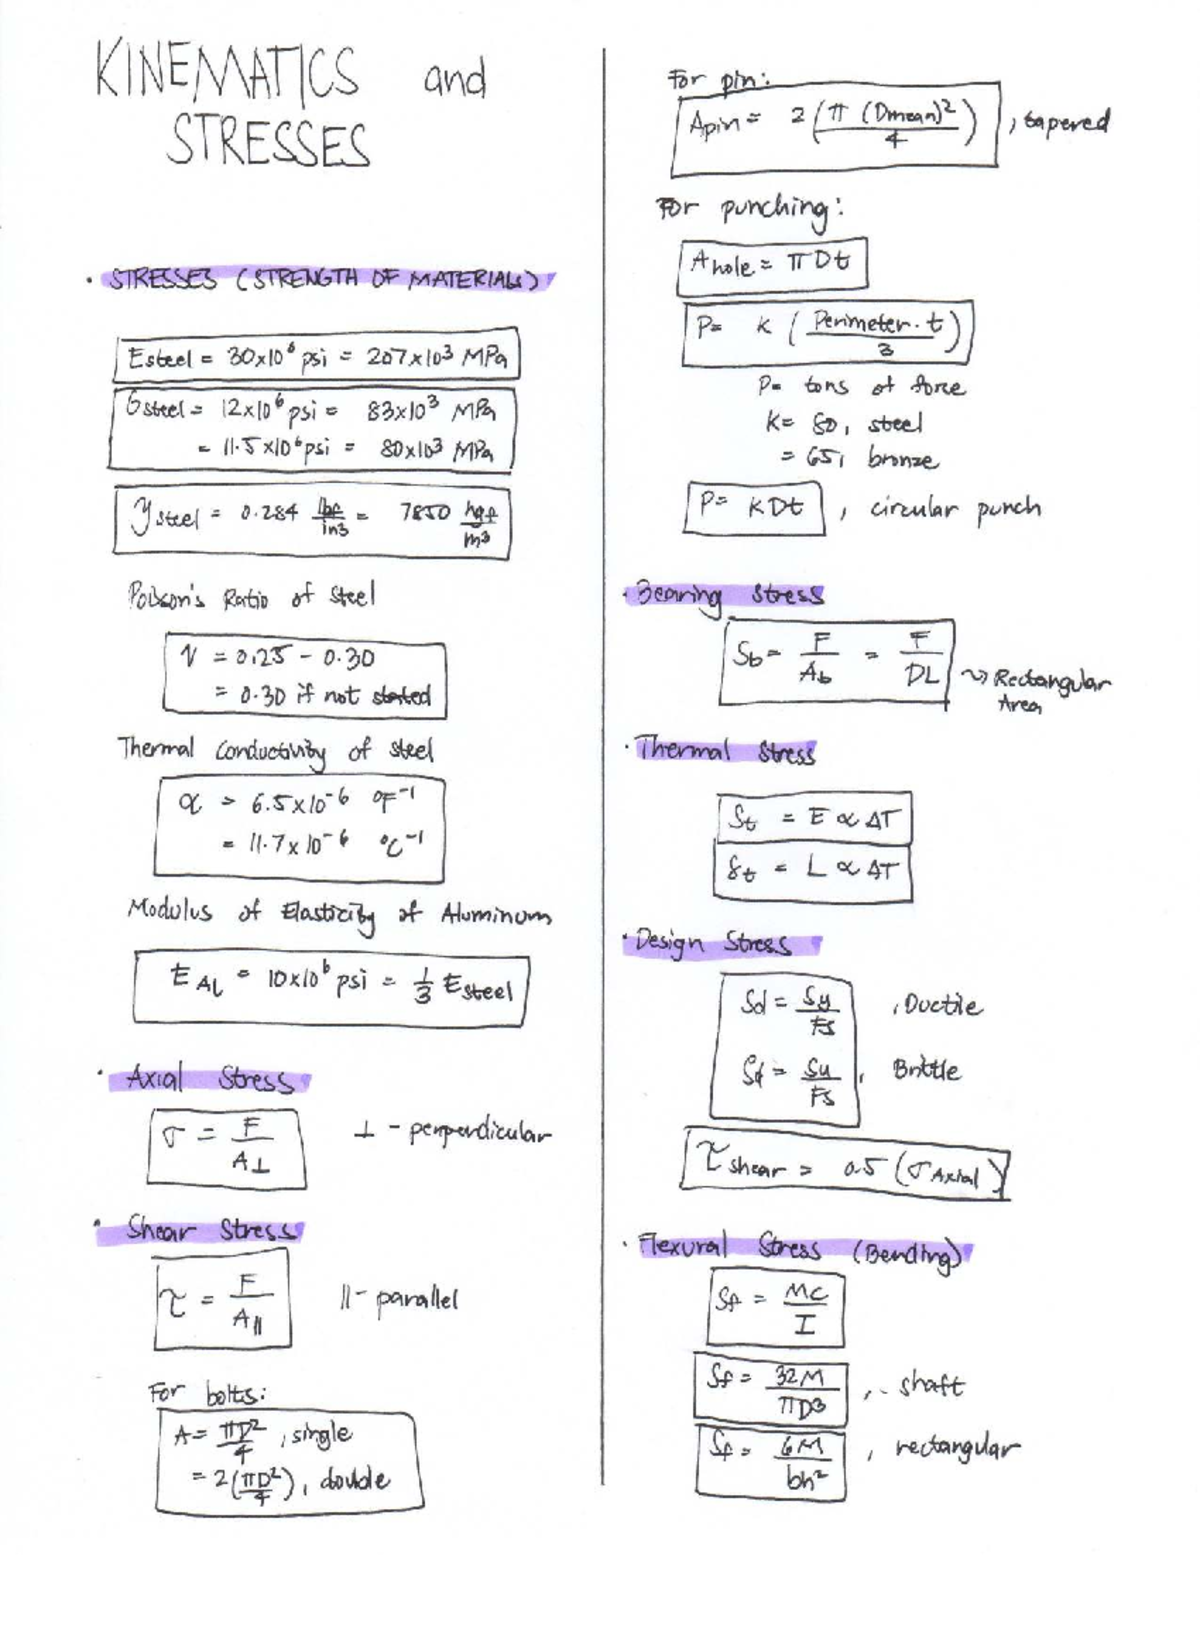 KINEMATICS and
STRESSES
• STRESSES (STRENGTH OF MATERIALS)
Esteel = 30x10⁶ psi = 207x10³ MPa
Gsteel = 12x10⁶ psi = 83x10³ MPa
= 11.5x10⁶ psi = 80x10³ MPa
γsteel = 0.284 lbf/in3 = 7850 kgf/m³
Poisson's Ratio of Steel
ν = 0.25 - 0.30
= 0.30 if not stated
Thermal Conductivity of steel
α = 6.5x10⁻⁶ °F⁻¹
= 11.7x10⁻⁶ °C⁻¹
Modulus of Elasticity of Aluminum
E AL = 10x10⁶ psi = 1/3 Esteel
• Axial Stress
σ = F/A⊥ ⊥ - perpendicular
• Shear Stress
τ = F/A|| || - parallel
For bolts:
A = πD²/4 , single
= 2(πD²/4), double
For pin:
Apin = 2(π (Dmean)²/4) , tapered
For punching:
Ahole = πDt
P= K (Perimeter · t/3)
P= tons of force
K= 80, steel
= 65, bronze
P= KDt , circular punch
• Bearing Stress
Sb = F/Ab = F/DL → Rectangular
Area
• Thermal Stress
St = E α ΔT
δt = L α ΔT
• Design Stress
Sd = Sy/Fs , Ductile
Sd = Su/Fs , Brittle
τshear = 0.5 (σAxial)
• Flexural Stress (Bending)
Sf = MC/I
Sf = 32M/πD3 , shaft
Sf = 6M/bh² , rectangular